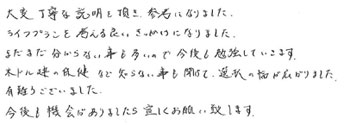 大変丁寧な説明を頂き、参考になりました。
ライフプランを考える良いきっかけになりました。
まだまだ分からない事も多いので今後も勉強していきます。
米ドル建の保険など知らない事も聞けて、選択の幅が広がりました。
有難うございました。
今後も機会がありましたら宜しくお願い致します。